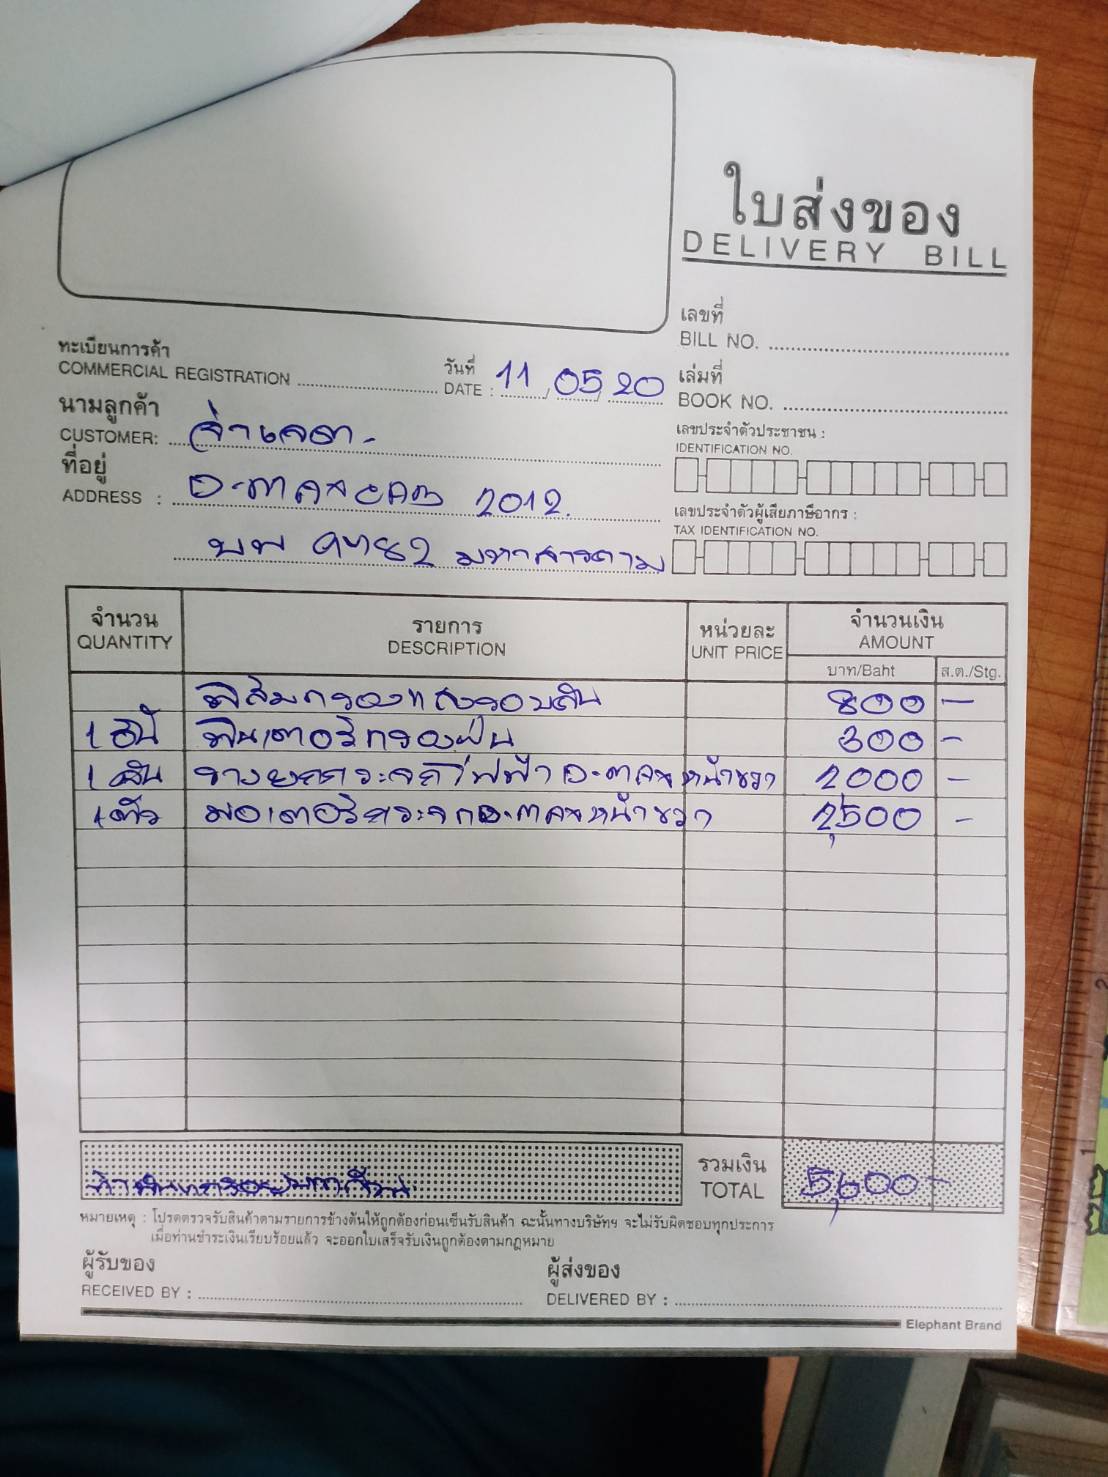 ใบส่งของ
DELIVERY BILL
เลขที่
BILL NO.
ทะเบียนการค้า
COMMERCIAL REGISTRATION
วันที่
DATE : 11 / 05 / 20
เล่มที่
BOOK NO.
นามลูกค้า
CUSTOMER:
เลขประจำตัวประชาชน :
IDENTIFICATION NO.
ที่อยู่
ADDRESS : 2012.
เลขประจำตัวผู้เสียภาษีอากร :
TAX IDENTIFICATION NO.
มหาสารคาม
จำนวน
QUANTITY
รายการ
DESCRIPTION
หน่วยละ
UNIT PRICE
จำนวนเงิน
AMOUNT
บาท/Baht
ส.ต./Stg.
ฟิล์มกรองแสงรอบคัน 800 -
1 อัน ฟินเตอร์กรองฝุ่น 300 -
1 เส้น ยางยกกระจกไฟฟ้า หน้าขวา 2000 -
1 ตัว มอเตอร์กระจก หน้าขวา 2,500 -
รวมเงิน
TOTAL 5,600 -
หมายเหตุ : โปรดตรวจรับสินค้าตามรายการข้างต้นให้ถูกต้องก่อนเซ็นรับสินค้า ฉะนั้นทางบริษัทฯ จะไม่รับผิดชอบทุกประการ
เมื่อท่านชำระเงินเรียบร้อยแล้ว จะออกใบเสร็จรับเงินถูกต้องตามกฎหมาย
ผู้รับของ
RECEIVED BY :
ผู้ส่งของ
DELIVERED BY :
Elephant Brand